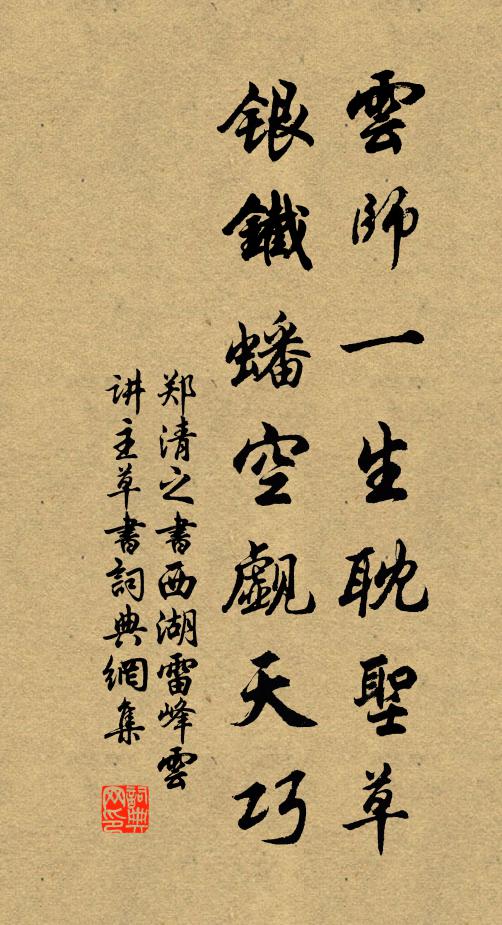 雲師一生耽聖草
銀鐵蟠空覷天巧
郑清之书西湖雷峰雲
讲主草書詞典網集
詞典网印